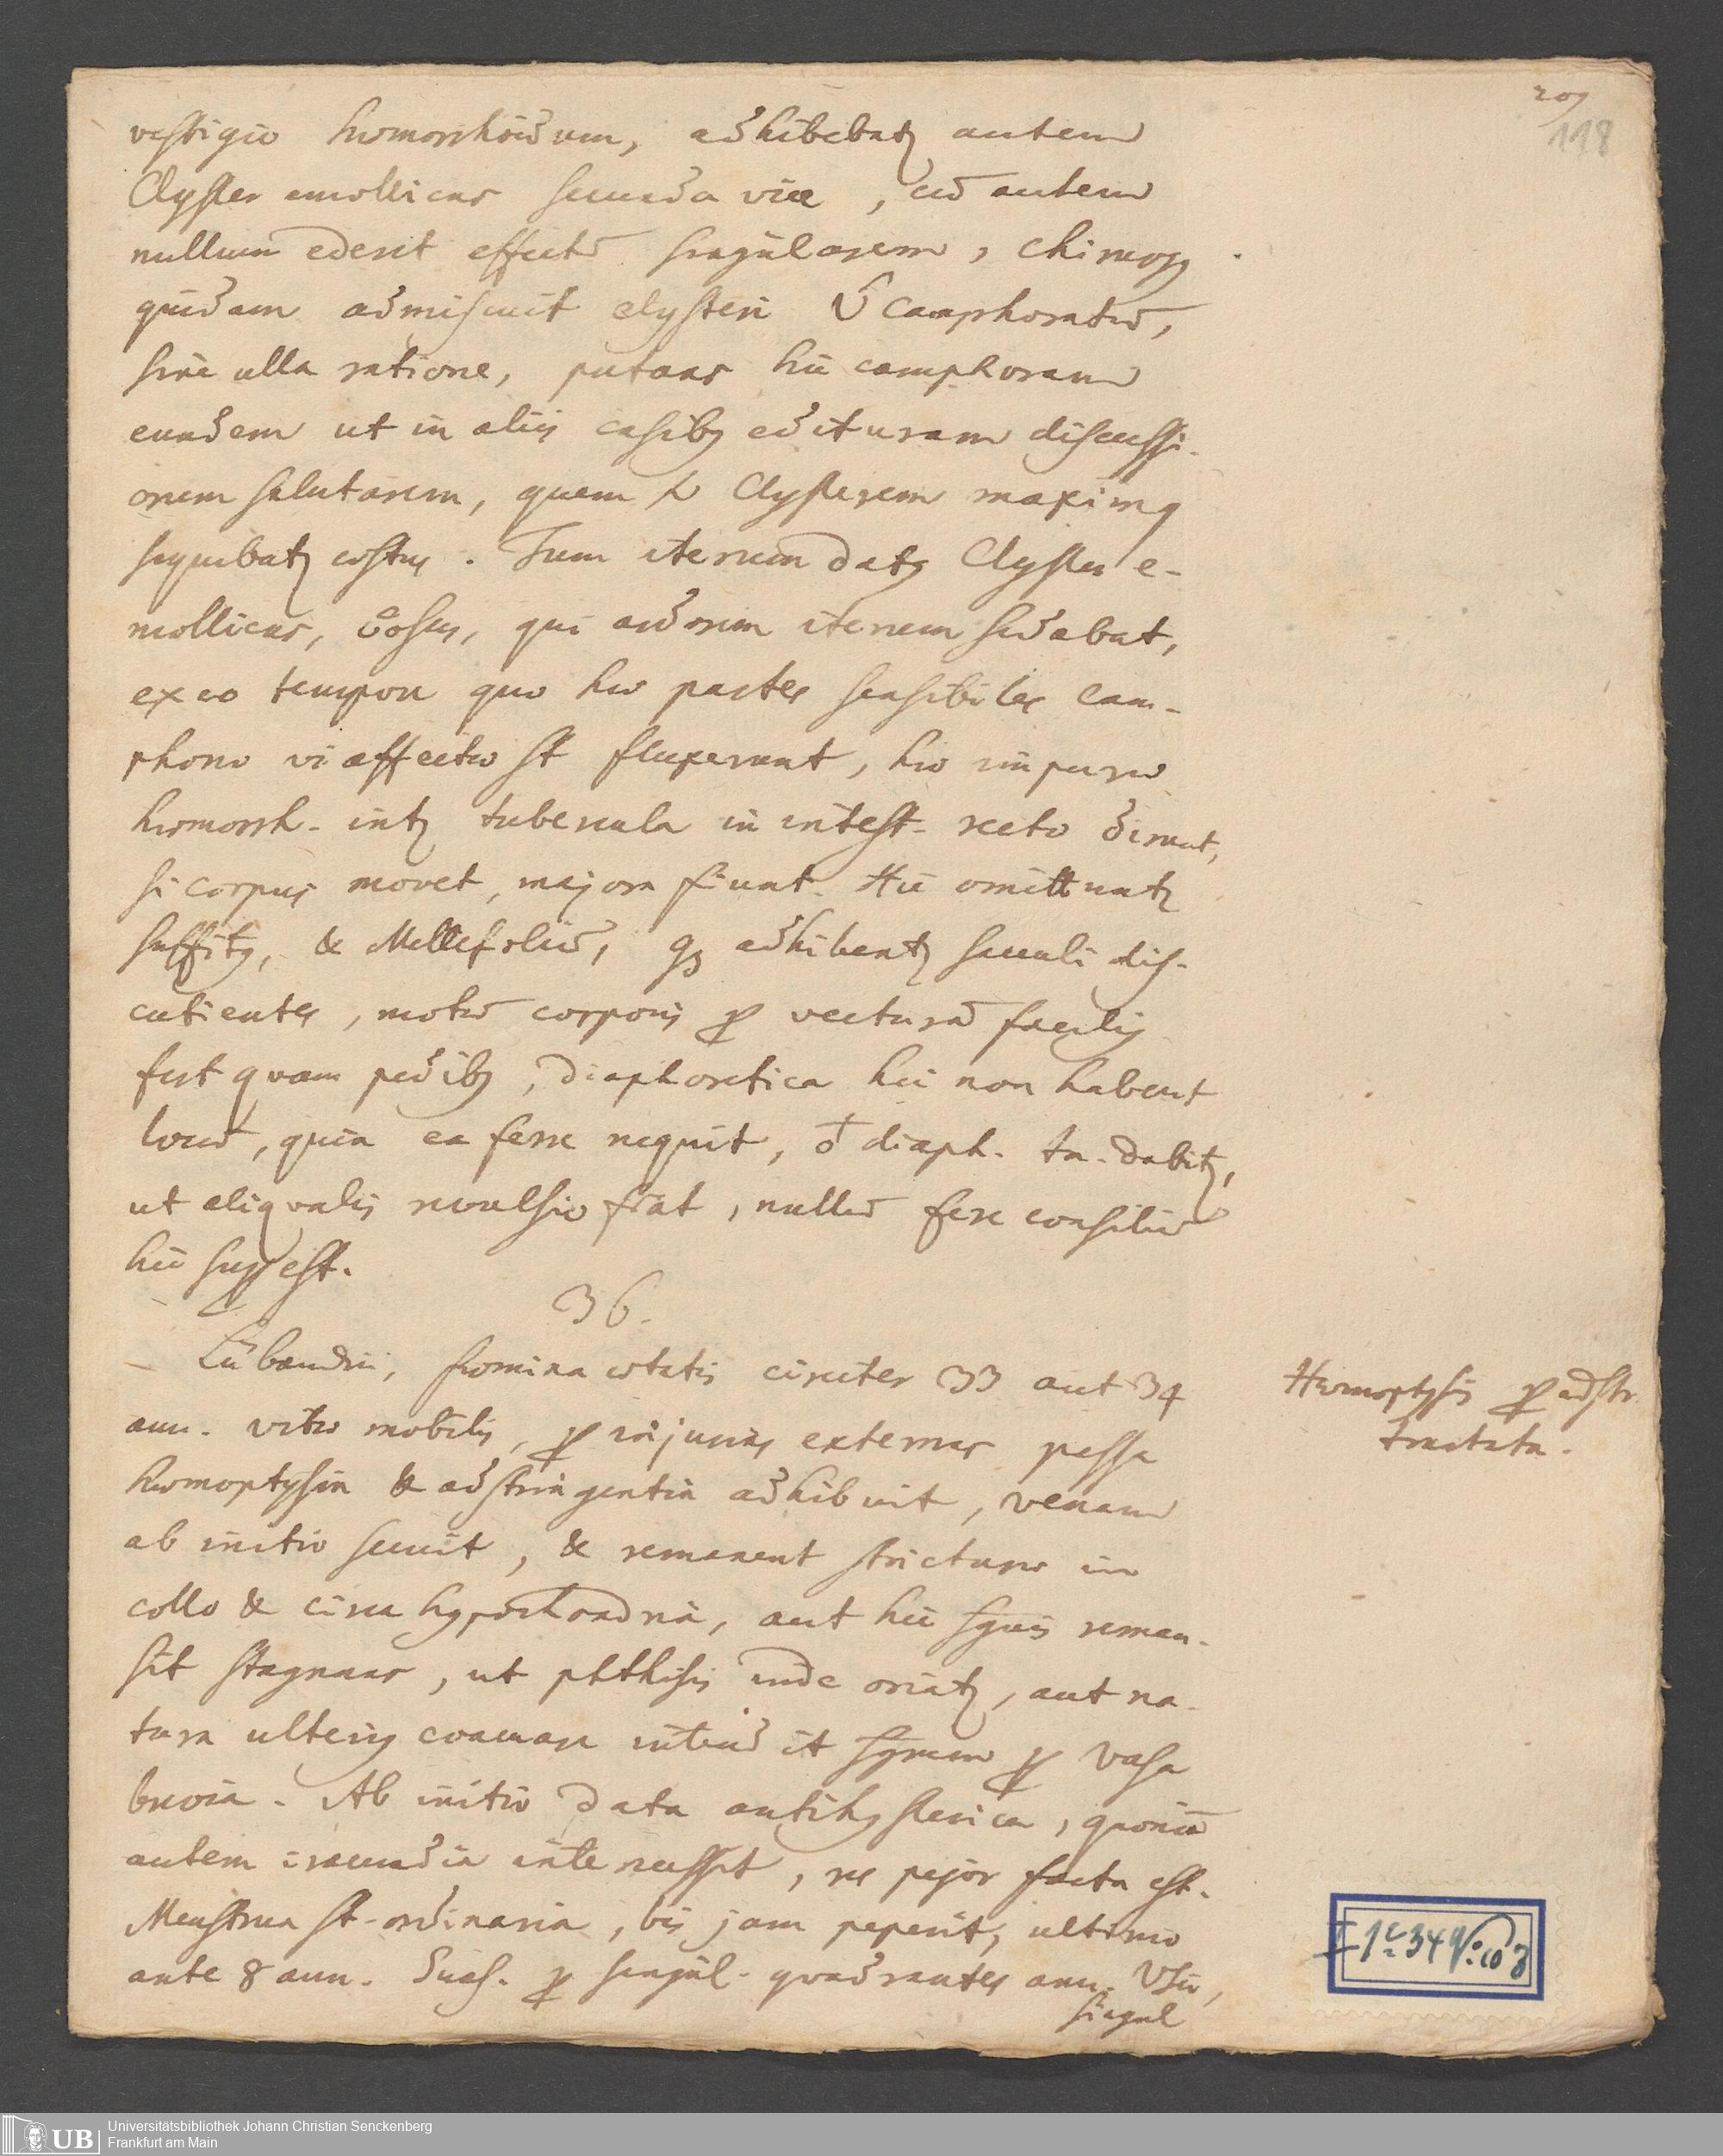 209
118
vestigio hæmorrhoidum, adhibebatr autem
Clyster emolliens secunda vice, cū autem
nullum ederit effectū singularem, chirurg
quidam admiscuit clysteri camphoratū,
sine ulla ratione, putans hic camphoram
eundem ut in aliis casibg edituram discussi-
onem salutarem, quem Clysterem maximg
sequibatr æstus. Tum iterum datg Clyster e-
molliens, qui ardorem iterum sedabat,
ex eo tempore quo hæ partes sensibiles cam-
phoræ vi affectæ st fluxerunt, hæ impuræ
hæmorrh. intr tubercula in intest. recto
si corpus movet, majora fiunt. Hic omittuntr
suffitg, & Millefoliū, adhibentr sacculi dis-
cutientes, motū corporis per vecturā facilig
fert quam pedibg, diaphoretica hic non habent
locū, quia ea ferre nequit, ♁ diaph. tn. dabitr,
ut aliqualis revulsio fiat, nullū fere consiliū
hic supest.
36.
fœmina ætatis circiter 33 aut 34
ann. vitæ mobilis, per injurias externas passa
hæmoptysin & adstringentia adhibuit, venam
ab initio secuit, & remanent stricturæ in
collo & circa hypochondria, aut hic sgnis reman-
sit stagnans, ut phthisis inde oriatr, aut na-
tura ulterig evacuare intendit sgnem per vasa
brevia. Ab initio data antihysterica, quoniā
autem iracundia intercessit, res pejor facta est.
Menstrua st ordinaria, bis jam peperit, ultimo
ante 8 ann. Suas. per singul. quadrantes ann. VSio,
singul
Hæmoptysis per adstr.
tractata.
Universitätsbibliothek Johann Christian Senckenberg
Frankfurt am Main
UB